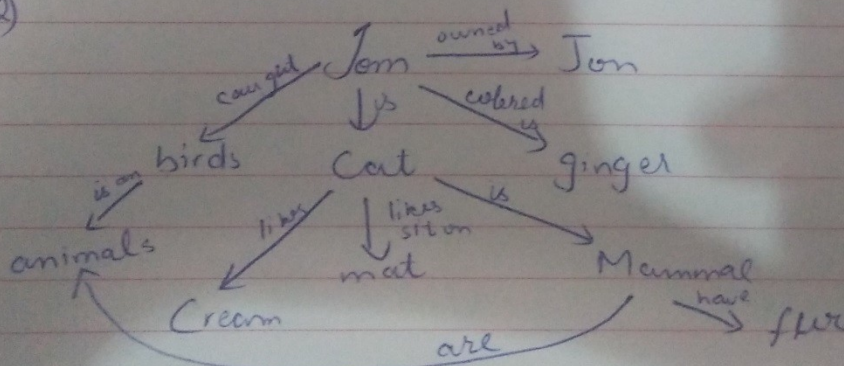 2)
Tom owned by Jon
caught is colored is
birds Cat ginger
is an likes likes sit on is
animals mat Mammal
Cream have fur
are